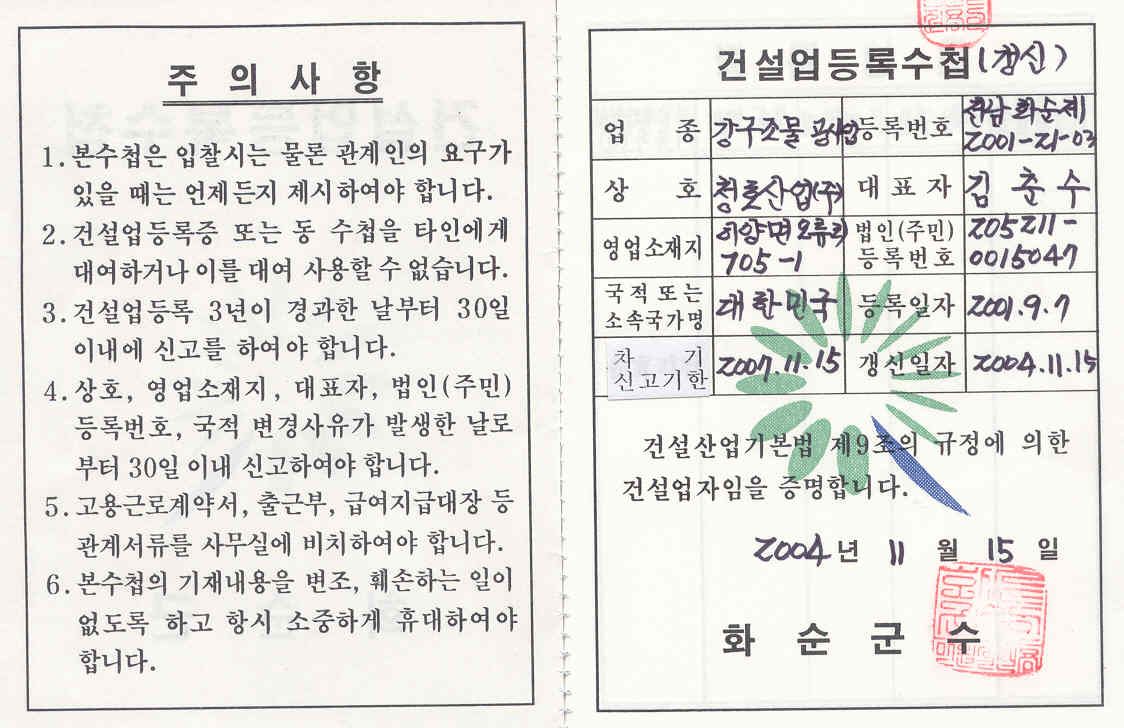 주 의 사 항
1. 본수첩은 입찰시는 물론 관계인의 요구가
있을 때는 언제든지 제시하여야 합니다.
2. 건설업등록증 또는 동 수첩을 타인에게
대여하거나 이를 대여 사용할 수 없습니다.
3. 건설업등록 3년이 경과한 날부터 30일
이내에 신고를 하여야 합니다.
4. 상호, 영업소재지, 대표자, 법인(주민)
등록번호, 국적 변경사유가 발생한 날로
부터 30일 이내 신고하여야 합니다.
5. 고용근로계약서, 출근부, 급여지급대장 등
관계서류를 사무실에 비치하여야 합니다.
6. 본수첩의 기재내용을 변조, 훼손하는 일이
없도록 하고 항시 소중하게 휴대하여야
합니다.
건설업등록수첩(갱신)
업 종 강구조물공사업 등록번호 전남 화순제
2001-21-03
상 호 청롯산업(주) 대 표 자 김 춘 수
영업소재지 이양면 오류리
705-1
법인(주민)
등록번호
205211-
0015047
국적 또는
소속국가명
대한민국 등록일자 2001.9.7
차 기
신고기한
2007.11.15 갱신일자 2004.11.15
건설산업기본법 제9조의 규정에 의한
건설업자임을 증명합니다.
2004년 11 월 15 일
화 순 군 수